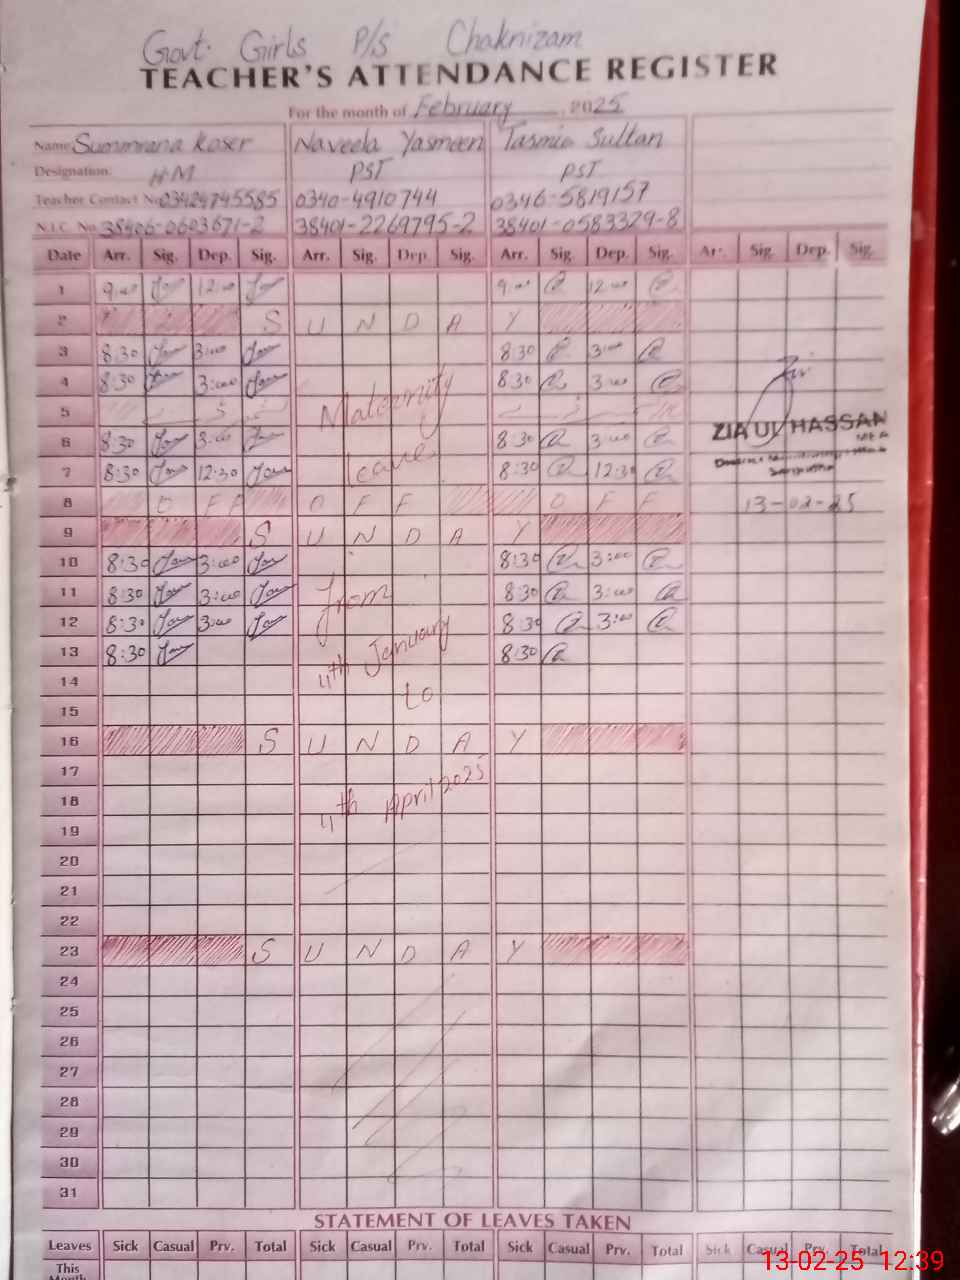 Govt. Girls P/S Chaknizam
TEACHER'S ATTENDANCE REGISTER
For the month of February, 2025
Name Summrana Koser Naveela Yasmeen Tasmia Sultan
Designation. HM PST PST
Teacher Contact No 03424745585 0340-4910744 0346-5819157
N.I.C. No. 38406-0603671-2 38401-2269795-2 38401-0583329-8
Date Arr. Sig. Dep. Sig. Arr. Sig. Dep. Sig. Arr. Sig. Dep. Sig. Arr. Sig. Dep. Sig.
1 9:00 12:00 9:00 12:00
2 S U N D A Y
3 8:30 3:00 8:30 3:00
4 8:30 3:00 Maternity 8:30 3:00
5 ZIA UL HASSAN
6 8:30 3:00 8:30 3:00 MEA
7 8:30 12:30 leave 8:30 12:30
8 O F F O F F O F F 13-02-25
9 S U N D A Y
10 8:30 3:00 8:30 3:00
11 8:30 3:00 from 8:30 3:00
12 8:30 3:00 8:30 3:00
13 8:30 11th January 8:30
14 to
15
16 S U N D A Y
17
18 11th April 2025
19
20
21
22
23 S U N D A Y
24
25
26
27
28
29
30
31
STATEMENT OF LEAVES TAKEN
Leaves Sick Casual Prv. Total Sick Casual Prv. Total Sick Casual Prv. Total Sick Casual Prv. Total
This
Month
13-02-25 12:39